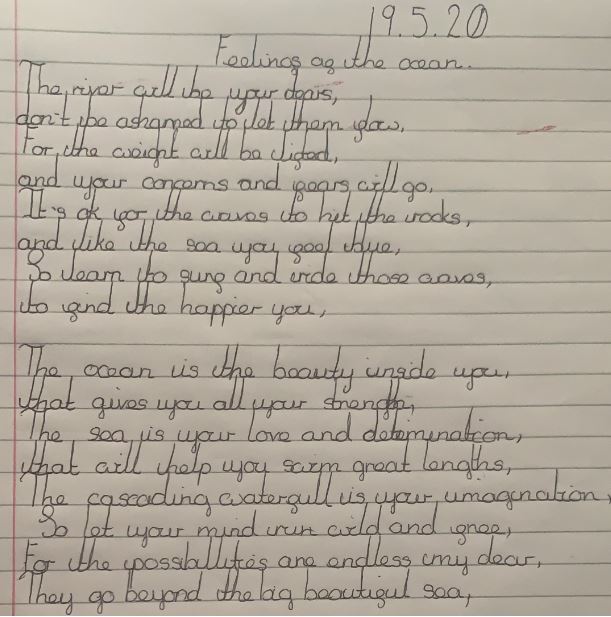 19.5.20
Feelings as the ocean.
The river will be your tears,
don't be ashamed to let them flow,
For, the weight will be lifted,
and your concerns and fears will go,
It's ok for the waves to hit the rocks,
and like the sea you feel blue,
So learn to surf and ride those waves,
to find the happier you,
The ocean is the beauty inside you,
that gives you all your strength,
The sea is your love and determination,
that will help you swim great lengths,
The cascading waterfull is your imagination,
So let your mind run wild and free,
For the possibilities are endless my dear,
They go beyond the big beautiful sea,